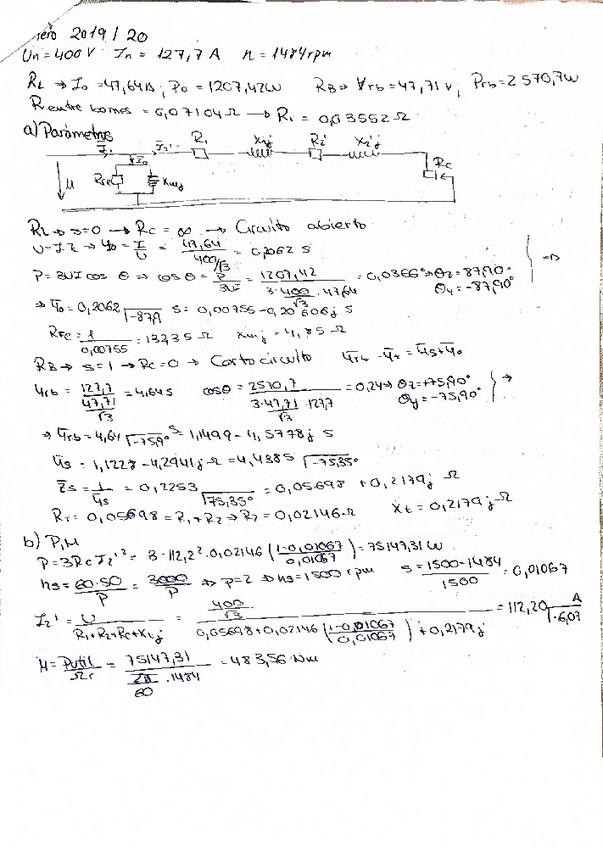 nero 2019/20
Un = 400 V In = 127,7 A n = 1484 rpm
RL → Io = 47,64A; Po = 1207,42W RB → Vrb = 47,71 V; Prb = 2570,7W
R entre bornes = 0,07104 Ω → R1 = 0,03552 Ω
a) Parámetros
I1 I2' R1 X1j R2' X2'j Rc
Io U RFe Xuj
RL → s=0 → Rc = ∞ → Circuito abierto
U = I·Z → Yo = I/U = 47,64/(400/√3) = 0,2062 S
P = 3UI cos θ ⇒ cos θ = P/3UI = 1207,42/(3·400/√3·47,64) = 0,0366 ⇒ θz = 87,90° θy = -87,90°
⇒ Yo = 0,2062 |-87,9 S = 0,00755 - 0,20606j S
RFC = 1/0,00755 = 132,35 Ω Xuj = 4,85 Ω
RB → s=1 → Rc=0 → Cortocircuito Yrb - Yx = Ys + Yo
Yrb = 127,7/(47,71/√3) = 4,64 S cos θ = 2570,7/(3·47,71/√3·127,7) = 0,24 ⇒ θz = +75,90° θy = -75,90°
⇒ Yrb = 4,64 |-75,9° S = 1,1499 - 4,5778j S
Ys = 1,1228 - 4,2941j Ω = 4,4385 |-75,35°
Zs = 1/Ys = 0,2253 |75,35° = 0,05698 + 0,2179j Ω
RT = 0,05698 = R1 + R2 ⇒ R2 = 0,02146 Ω Xt = 0,2179j Ω
b) P, M
P = 3 Rc I2'² = 3·112,2²·0,02146 ((1-0,01067)/0,01067) = 75147,31 W
ns = 60·50/P = 3000/P ⇒ p=2 ⇒ ns = 1500 rpm s = (1500-1484)/1500 = 0,01067
I2' = U/(R1+R2+Rc+Xcj) = (400/√3)/(0,05698 + 0,02146 ((1-0,01067)/0,01067) + 0,2179j) = 112,20 |-6,07 A
M = Putil/Ωr = 75147,31/(2π/60·1484) = 483,56 Nm